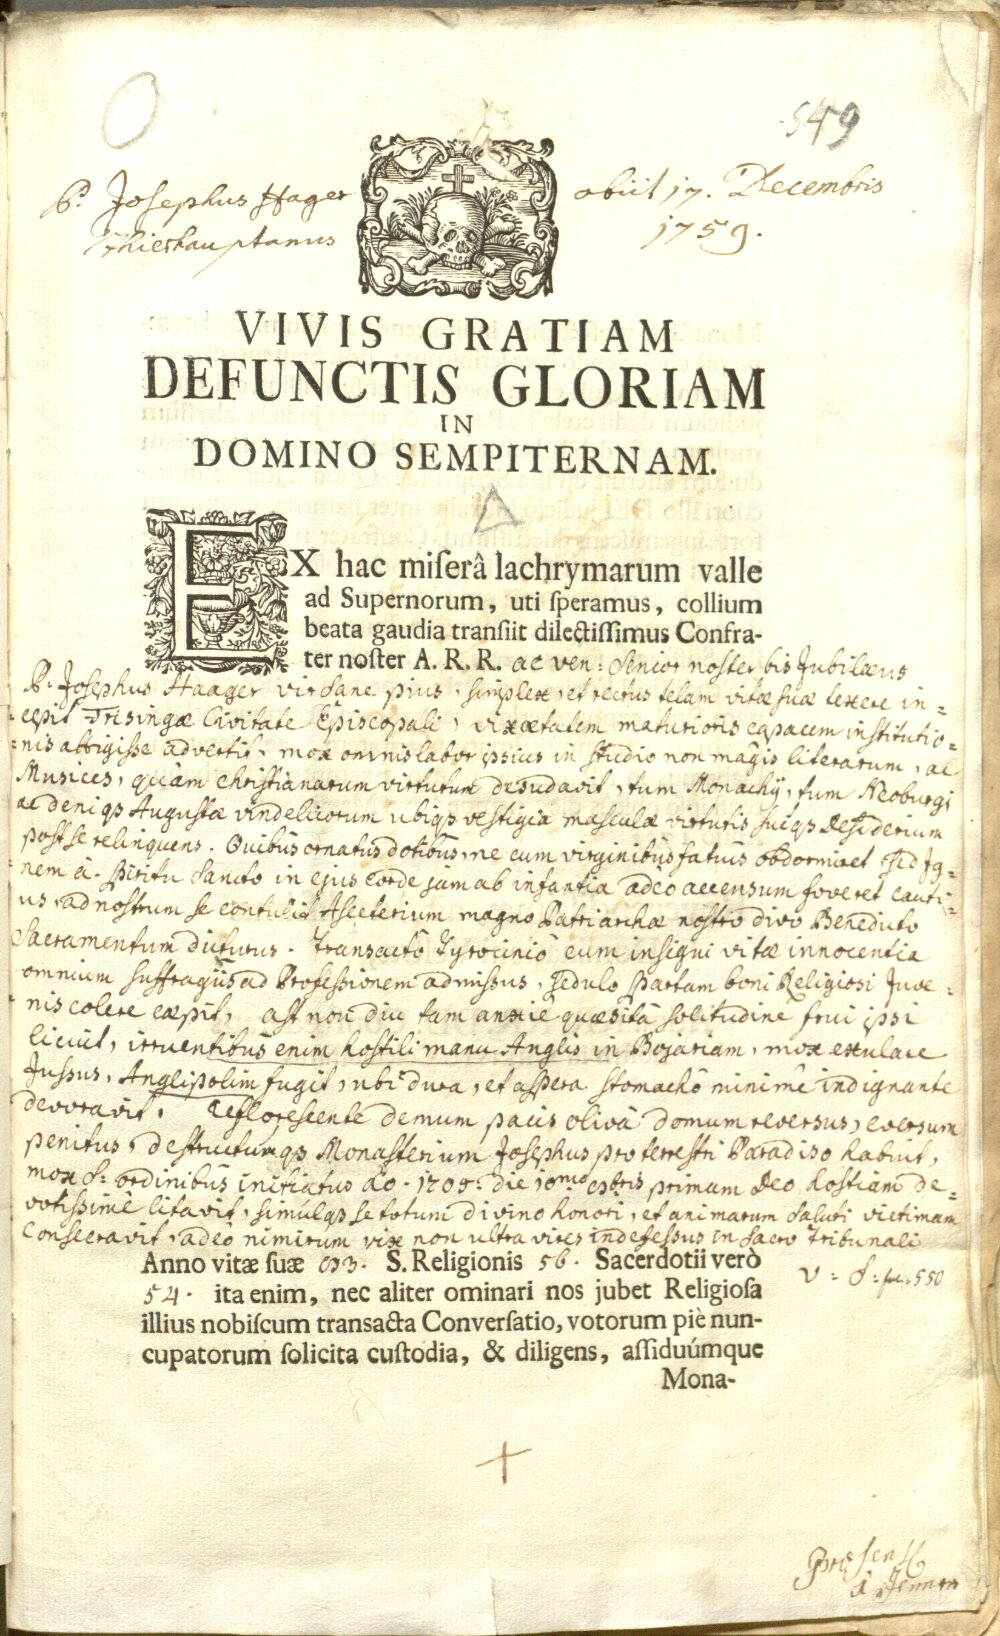 549
P. Josephus Hager
obiit 17. Decembris
Thierhauptanus
1759.
VIVIS GRATIAM
DEFUNCTIS GLORIAM
IN
DOMINO SEMPITERNAM.
EX hac miserâ lachrymarum valle
ad Supernorum, uti speramus, collium
beata gaudia transiit dilectissimus Confra-
ter noster A. R. R. ac ven: Senior noster bis Jubilæus
P. Josephus Haager vir sane pius, simplex, et rectus telam vitæ suæ texere in=
cepit Frisingæ Civitate Episcopali, vix ætatem maturioris capacem institutio=
nis attigisse advertit, mox omnis labor ipsius in studio non magis literarum, ac
Musices, quàm christianarum virtutum desudavit, tum Monachij, tum Neoburgi
ac deniqs Augustæ vindelicorum ubiqs vestigia masculæ virtutis suiqs desiderium
post se relinquens. Quibus ornatus dotibus, ne cum virginibus fatuis obdormiret, sed Ig=
nem à Spiritu Sancto in ejus corde jam ab infantia adeo accensum foveret cauti=
us, ad nostrum se contulit Asceterium magno Patriarchæ nostro divo Benedicto
Sacramentum dicturus. Transactô Tyrociniô cum insigni vitæ innocentia
omnium suffragiis ad Professionem admissus, sedulo Spartam boni Religiosi Juve=
nis colere cæpit, ast non diu tam anxie quæsitâ solitudine frui ipsi
licuit, irruentibus enim hostili manu Anglis in Bojariam, mox exulare
Jussus, Anglipolim fugit, ubi dura, et aspera stomachô minimê indignante
devoravit. Reflorescente demum pacis olivâ domum reversus, eversum
penitus, destructumqs Monasterium Josephus pro terrestri Paradiso habuit,
mox S. ordinibus initiatus ao. 1705. die 10mo 8bris primam Deo hostiam de=
votissimè litavit, simulqs se totum divino honori, et animarum saluti victimam
consecravit, adeò nimirum vix non ultra vires indefessus in sacro Tribunali
Anno vitæ suæ 83. S. Religionis 56. Sacerdotii verò
V = S = fol. 550
54. ita enim, nec aliter ominari nos jubet Religiosa
illius nobiscum transacta Conversatio, votorum piè nun-
cupatorum solicita custodia, & diligens, assiduúmque
Mona-